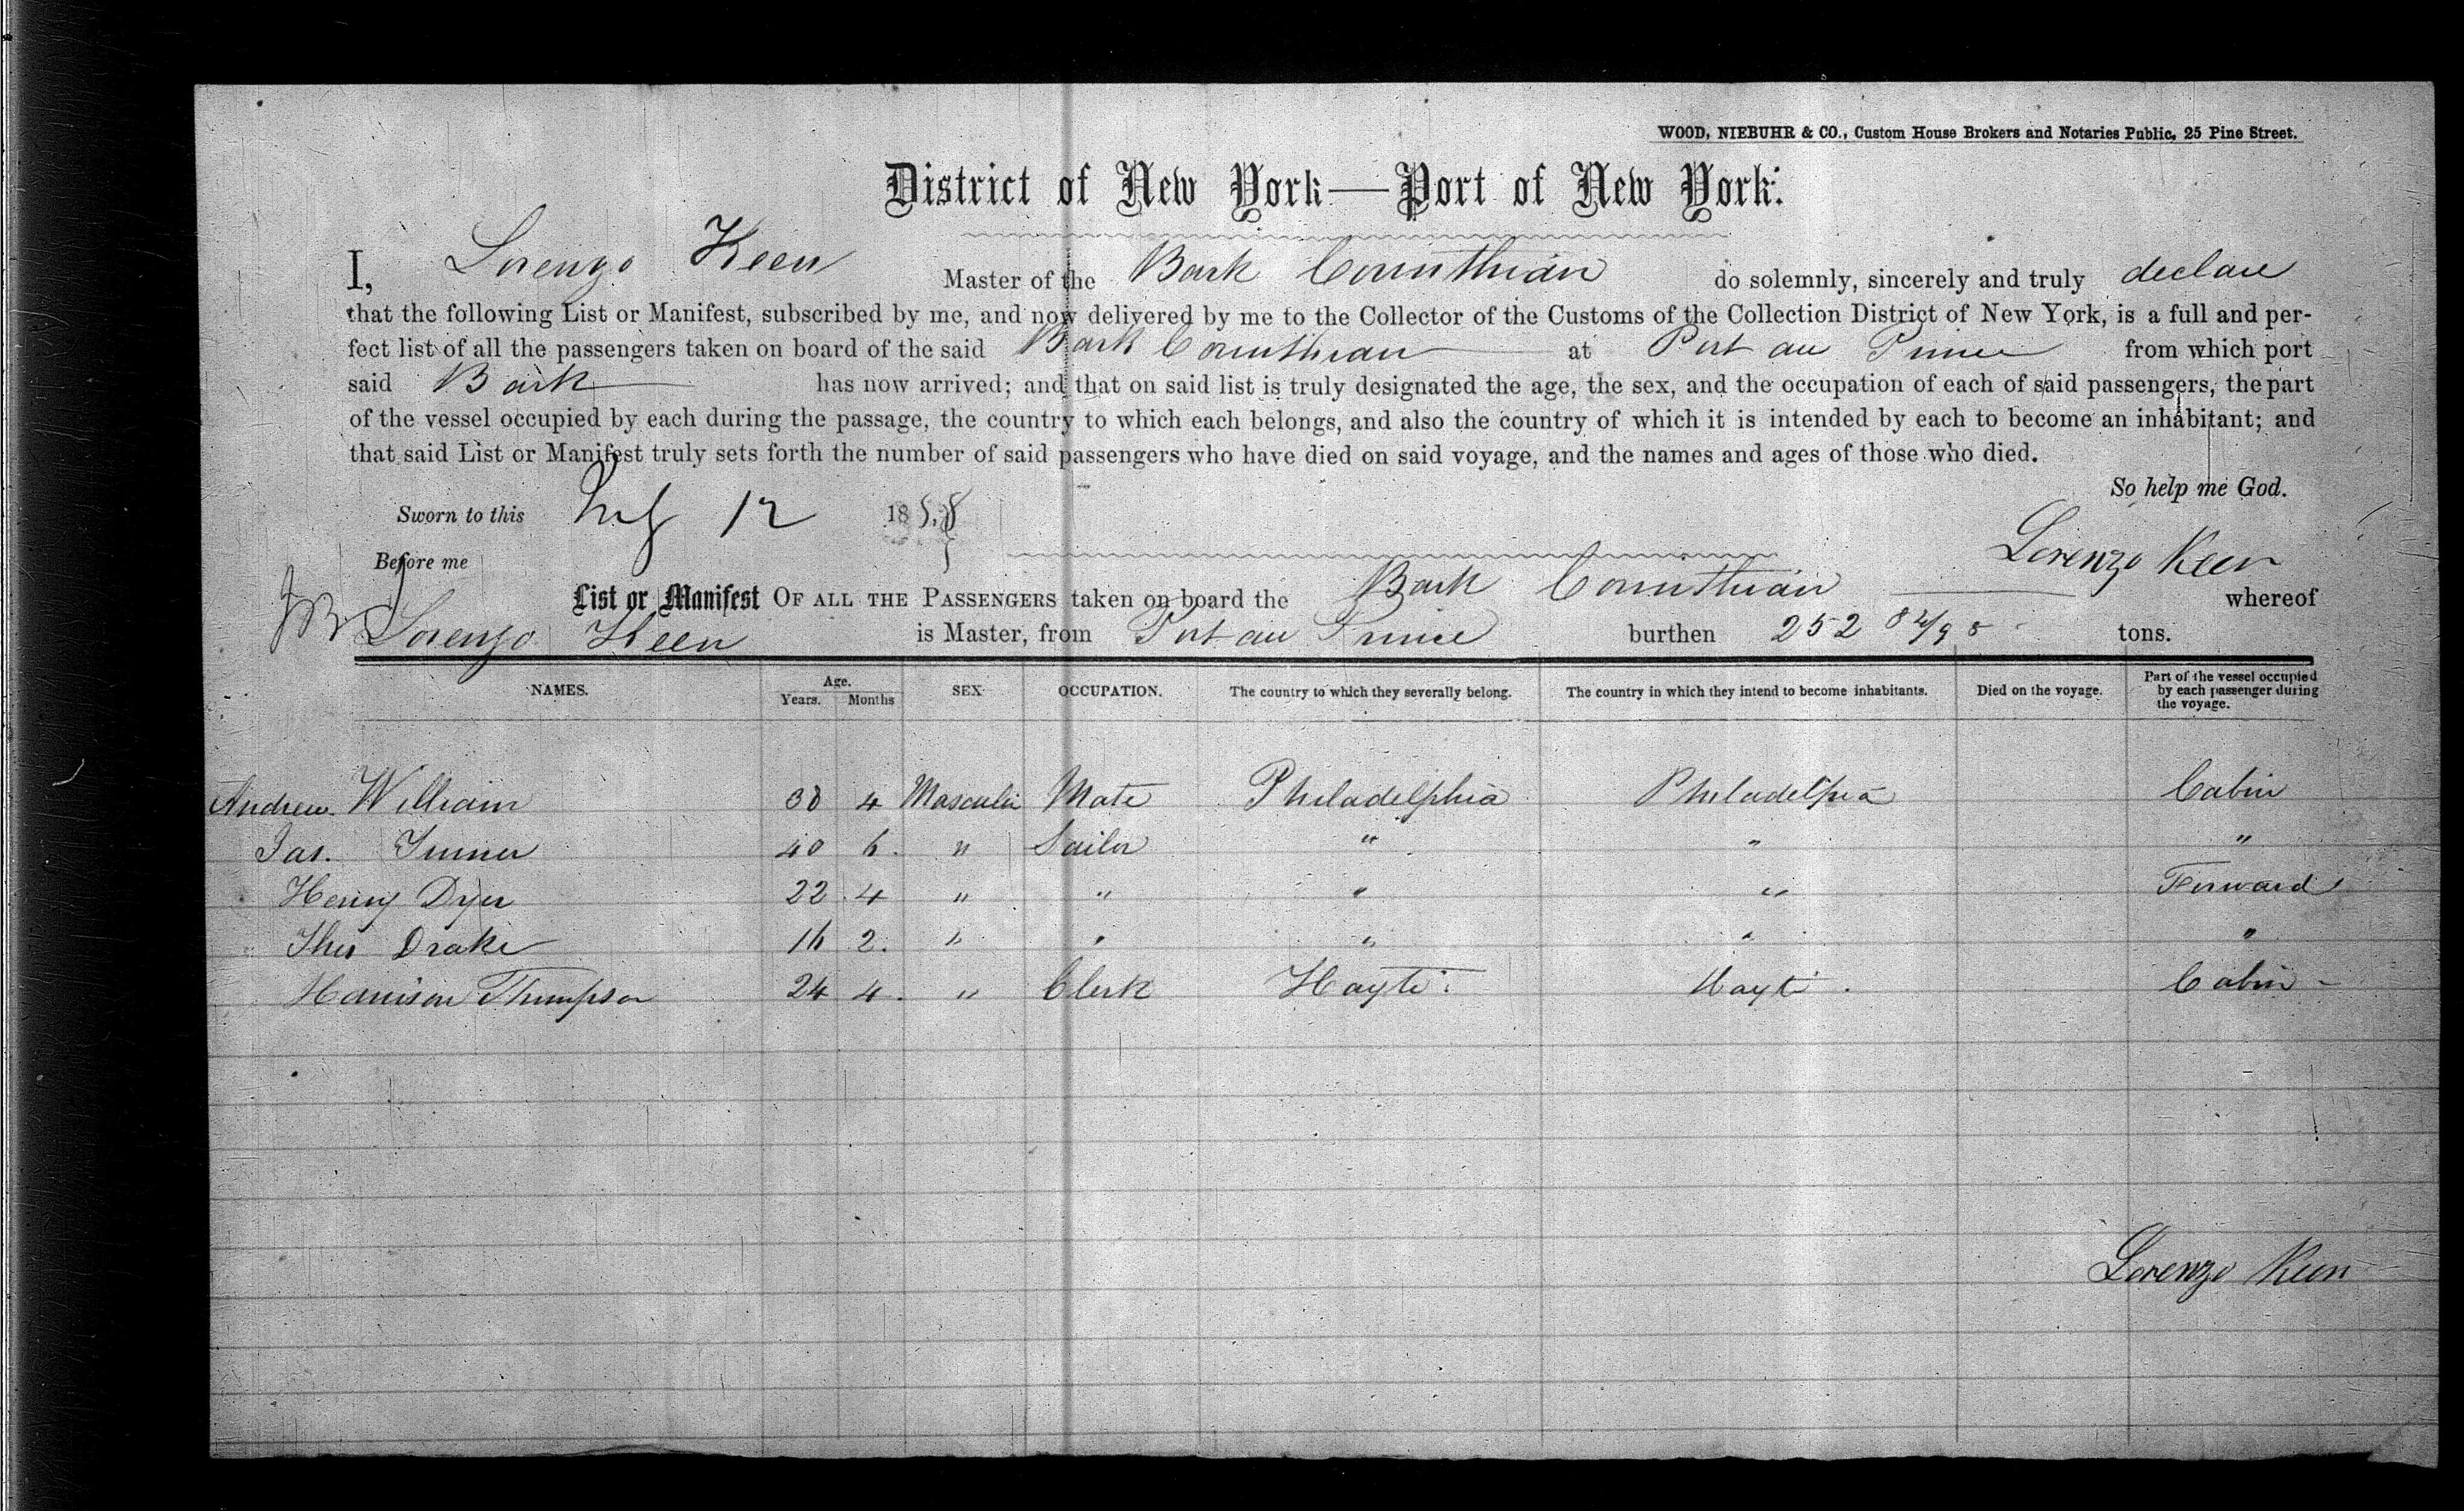 WOOD, NIEBUHR & CO., Custom House Brokers and Notaries Public, 25 Pine Street.
District of New York—Port of New York.
I, Lorenzo Keen Master of the Bark Corinthian do solemnly, sincerely and truly declare
that the following List or Manifest, subscribed by me, and now delivered by me to the Collector of the Customs of the Collection District of New York, is a full and per-
fect list of all the passengers taken on board of the said Bark Corinthian at Port au Prince from which port
said Bark has now arrived; and that on said list is truly designated the age, the sex, and the occupation of each of said passengers, the part
of the vessel occupied by each during the passage, the country to which each belongs, and also the country of which it is intended by each to become an inhabitant; and
that said List or Manifest truly sets forth the number of said passengers who have died on said voyage, and the names and ages of those who died.
So help me God.
Sworn to this July 12 1858
Lorenzo Keen
Before me
List or Manifest OF ALL THE PASSENGERS taken on board the Bark Corinthian whereof
Lorenzo Keen is Master, from Port au Prince burthen 252 82/95 tons.
NAMES. Age. Years. Months SEX OCCUPATION. The country to which they severally belong. The country in which they intend to become inhabitants. Died on the voyage. Part of the vessel occupied by each passenger during the voyage.
Andrew William 38 4 Masculin Mate Philadelphia Philadelphia Cabin
Jas. Turner 40 6. " Sailor " " "
Henry Dyer 22 4 " " " " Forward
Thos Drake 16 2. " " " " "
Harrison Thompson 24 4. " Clerk Hayti. Hayti. Cabin
Lorenzo Keen